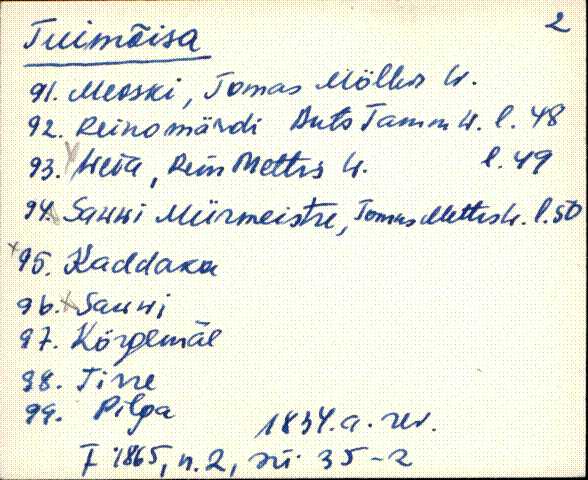 2
Tuimõisa
91. Meoski, Tomas Möllers w.
92. Reinomärdi Ants Tamm w. l. 48
93. Weta, Rein Mettis w. l. 49
94. Sauwi Müirmeistre, Tomas Mettis w. l. 50
x 95. Kaddaka
96. x Sauwi
97. Kõrgemäe
98. Tirre
99. Pilpa
1834. a. rev.
F 1865, n. 2, sü 35-2